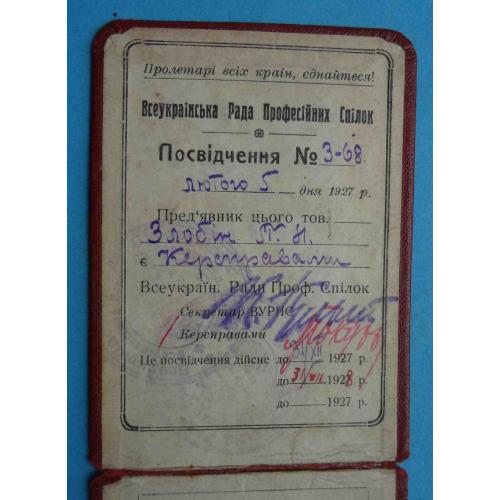 Пролетарі всіх країн, єднайтеся!
Всеукраїнська Рада Професійних Спілок
Посвідчення № 3-68.
лютого 5 дня 1927 р.
Пред'явник цього тов.
Злобін П. Н.
є Керсправами
Всеукраїн. Ради Проф. Спілок
Секретар ВУРПС
Керсправами
Це посвідчення дійсне до 31/XII 1927 р.
до 31/XII 1928 р.
до 1927 р.